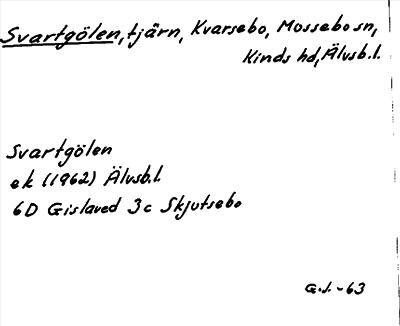 Svartgölen, tjärn, Kvarsebo, Mossebo sn,
Kinds hd, Älvsb.l.
Svartgölen
ek (1962) Älvsb.l.
6D Gislaved 3c Skjutsebo
G.J. -63